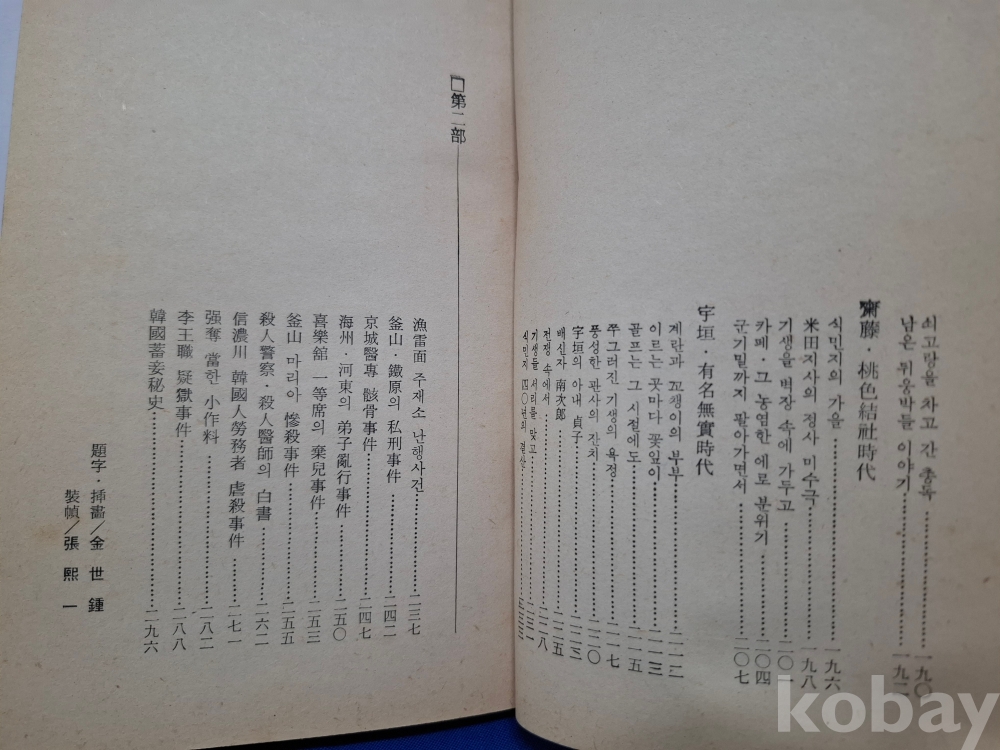 쇠고랑을 차고 간 총독……一九〇
남은 뒤웅박들 이야기……一九二
齋藤·桃色結社時代
식민지의 가을……一九六
米田지사의 정사 미수극……一九八
기생을 벽장 속에 가두고……二〇一
카페·그 농염한 에로 분위기……二〇四
군기밀까지 팔아가면서……二〇七
宇垣·有名無實時代
계란과 꼬챙이의 부부……二一一
이르는 곳마다 꽃잎이……二一三
골프는 그 시절에도……二一五
쭈그러진 기생의 욕정……二一七
풍성한 관사의 잔치……二二〇
宇垣의 아내 貞子……二二三
배신자 南次郎……二二五
전쟁 속에서……二二八
기생들 서리를 맞고……二三一
식민지 四〇년의 결산
□第二部
漁雷面 주재소 난행사건……二三七
釜山·鐵原의 私刑事件……二四二
京城醫專 骸骨事件……二四七
海州·河東의 弟子亂行事件……二五〇
喜樂舘 一等席의 棄兒事件……二五三
釜山 마리아 慘殺事件……二五五
殺人警察·殺人醫師의 白書……二六二
信濃川 韓國人勞務者 虐殺事件……二七一
强奪 當한 小作料……二八二
李王職 疑獄事件……二八八
韓國蓄妾秘史……二九六
題字·揷畵／金世鍾
裝幀／張熙一
kobay